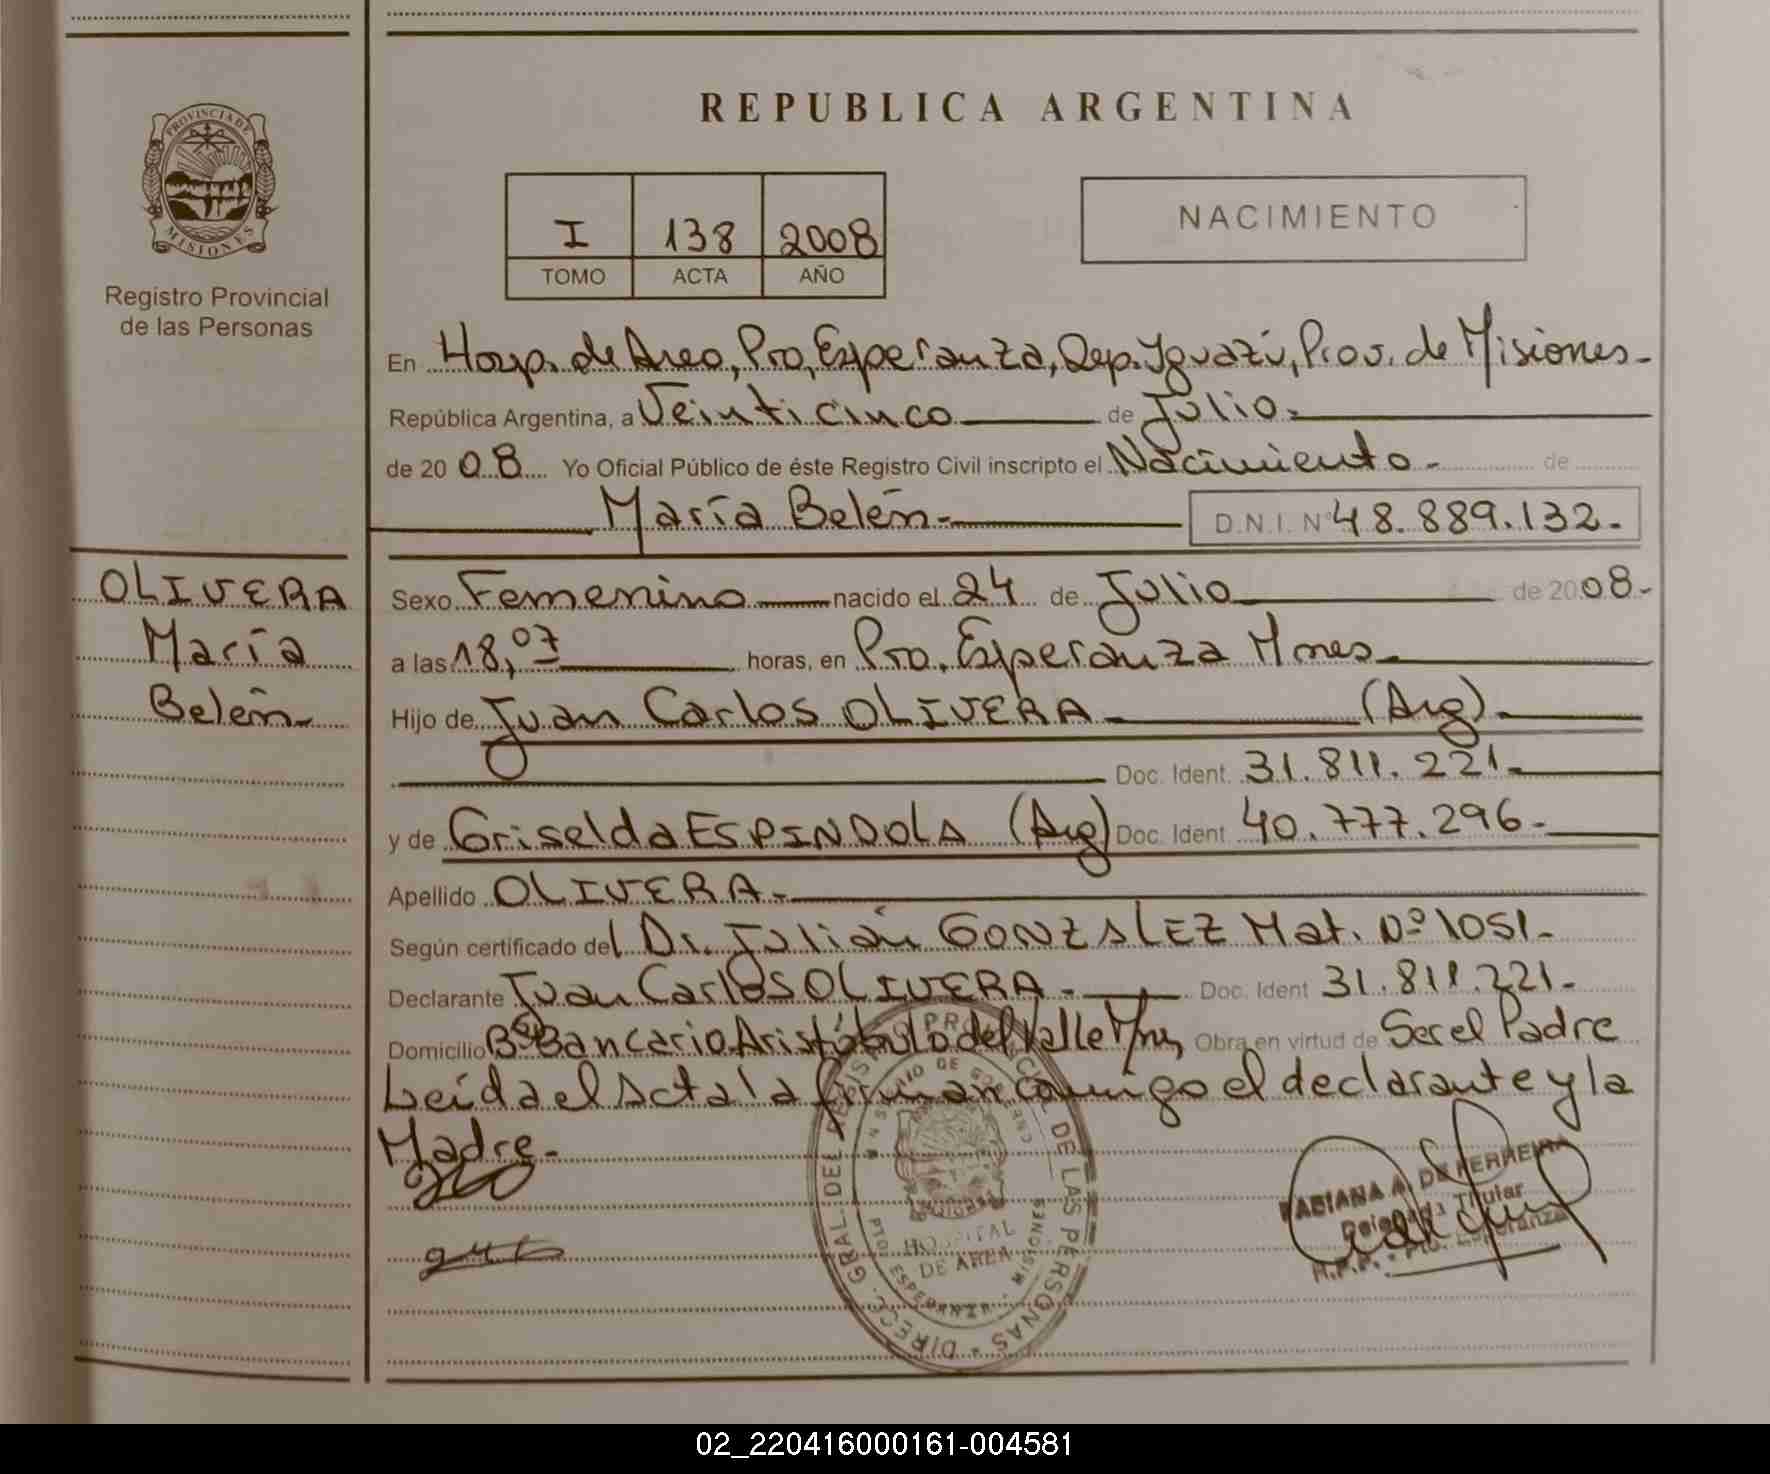 REPUBLICA ARGENTINA
PROVINCIA DE
MISIONES
Registro Provincial
de las Personas
I 138 2008
TOMO ACTA AÑO
NACIMIENTO
En Hosp. de Area, Pto, Esperanza, Dep. Iguazú, Prov. de Misiones-
República Argentina, a Veinticinco de Julio-
de 20 08 Yo Oficial Público de éste Registro Civil inscripto el Nacimiento- de
María Belén- D.N.I. Nº 48.889.132-
OLIVERA
María
Belén-
Sexo Femenino nacido el 24 de Julio de 2008-
a las 18,07 horas, en Pto. Esperanza Mnes-
Hijo de Juan Carlos OLIVERA- (Arg)-
Doc. Ident. 31.811.221-
y de Griselda ESPINDOLA (Arg) Doc. Ident 40.777.296-
Apellido OLIVERA-
Según certificado del Dr. Julián GONZALEZ Mat. Nº 1051-
Declarante Juan Carlos OLIVERA- Doc. Ident 31.811.221-
Domicilio Bº Bancario Aristóbulo del Valle Mns, Obra en virtud de Ser el Padre
Leída el Acta la firman conmigo el declarante y la
Madre-
DIRECC. GRAL. DEL REGISTRO PROVINCIAL DE LAS PERSONAS
MINISTERIO DE GOBIERNO
HOSPITAL
DE AREA
PTO ESPERANZA - MISIONES
FABIANA A. DE FERREIRA
Delegada Titular
R.P.P. - Pto. Esperanza
02_220416000161-004581